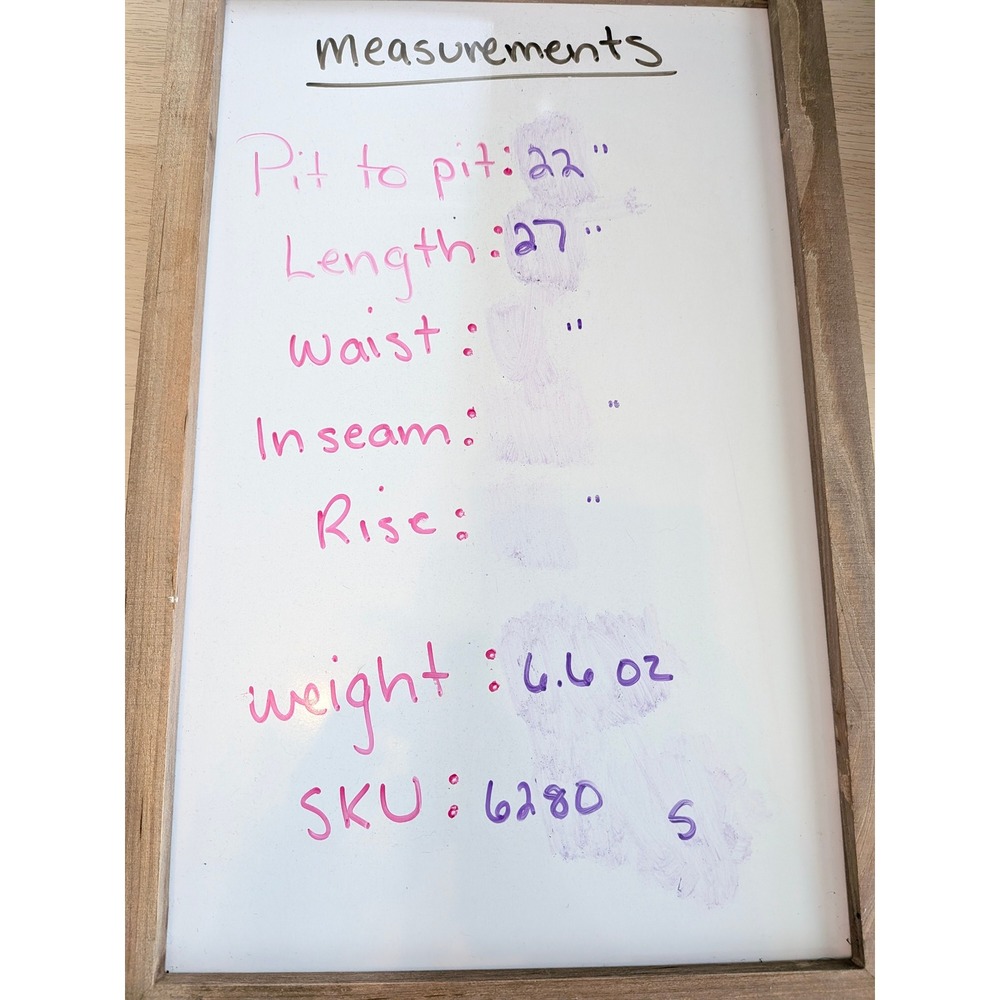 measurements
Pit to pit: 22"
Length: 27"
Waist: "
Inseam: "
Rise: "
weight: 6.6 oz
SKU: 6280 S